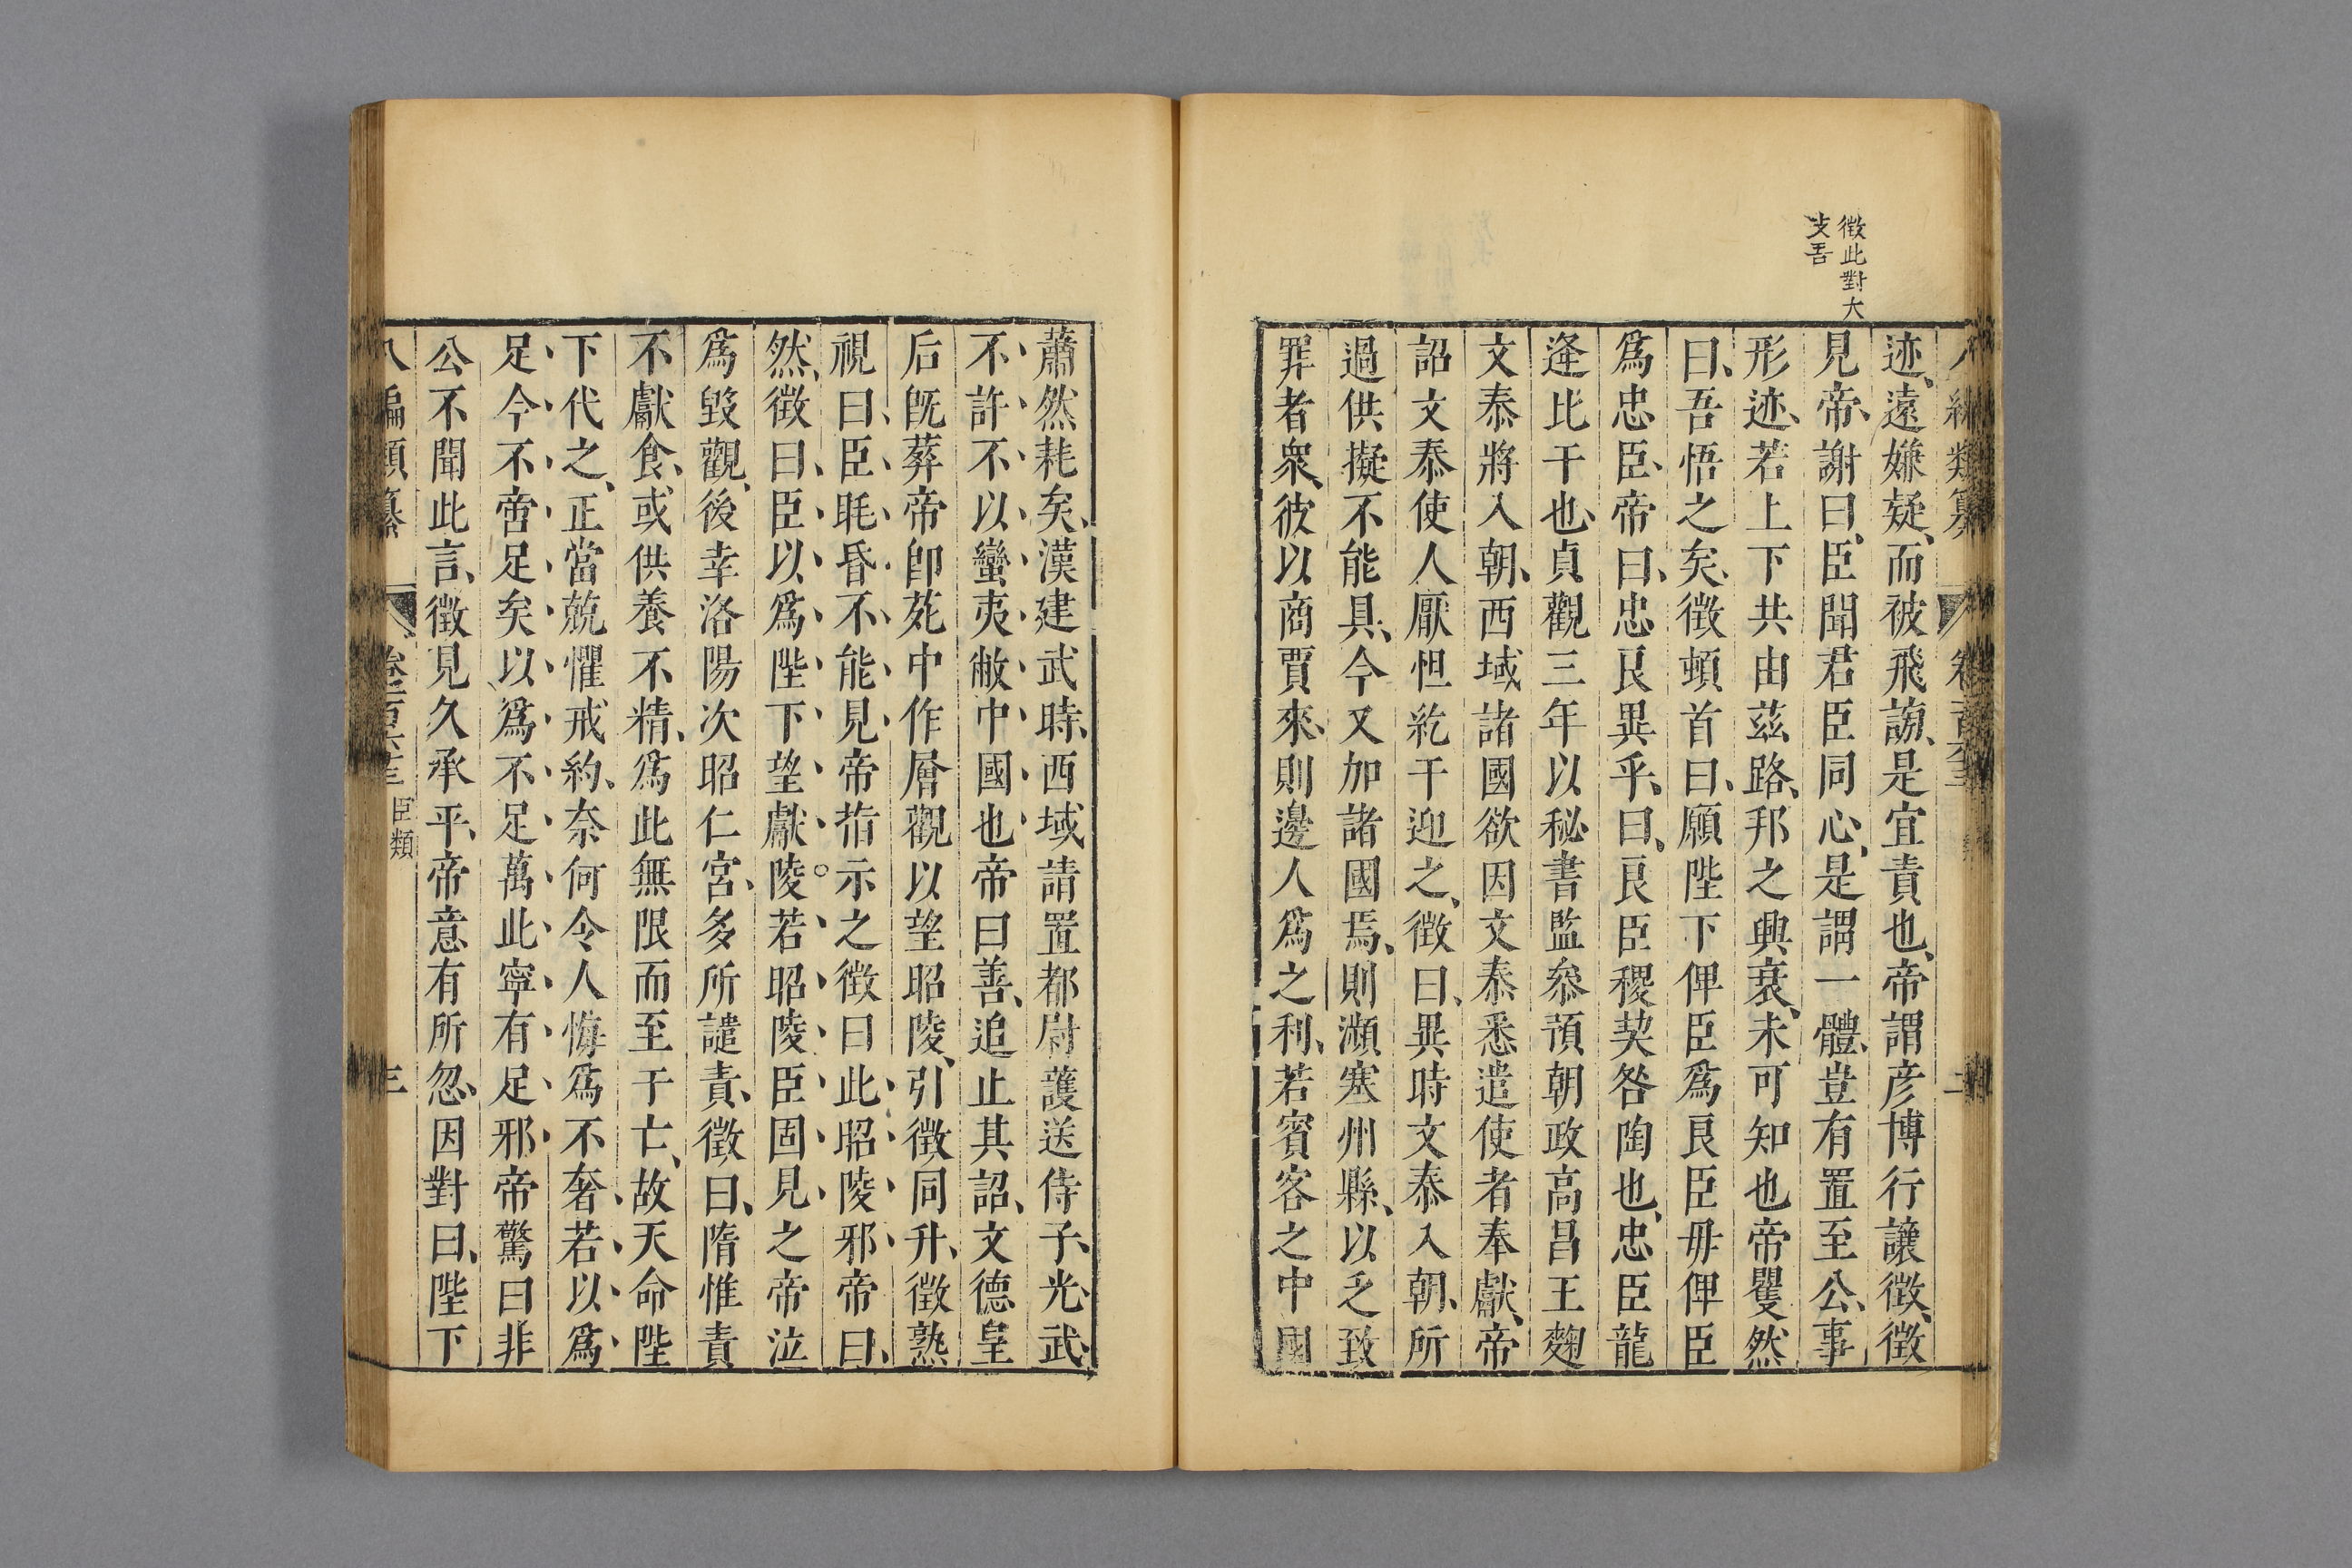 徵此對大
支吾
迹、遠嫌疑、而被飛謗、是宜責也、帝謂彦博行讓徵、徵
見帝、謝曰、臣聞君臣同心、是謂一體、豈有置至公、事
形迹、若上下共由茲路、邦之興衰、未可知也帝矍然
曰、吾悟之矣、徵頓首曰、願陛下俾臣爲良臣毋俾臣
爲忠臣、帝曰、忠良異乎、曰、良臣稷契咎陶也、忠臣龍
逄比干也、貞觀三年以秘書監叅預朝政高昌王麴
文泰將入朝、西域諸國欲因文泰悉遣使者奉獻、帝
詔文泰使人厭怛紇干迎之、徵曰、異時文泰入朝、所
過供擬不能具、今又加諸國焉、則瀕塞州縣、以乏致
罪者衆、彼以商賈來、則邊人爲之利、若賓客之中國
蕭然耗矣、漢建武時、西域請置都尉護送侍子、光武
不許不以蠻夷敝中國也帝曰善、追止其詔、文德皇
后旣葬帝卽苑中作層觀以望昭陵、引徵同升、徵熟
視曰、臣眊昏不能見帝指示之徵曰此昭陵邪帝曰、
然、徵曰、臣以爲陛下望獻陵若昭陵臣固見之帝泣
爲毀觀、後幸洛陽次昭仁宮、多所譴責、徵曰、隋惟責
不獻食、或供養不精、爲此無限而至于亡、故天命陛
下代之、正當兢懼戒約、奈何令人悔爲不奢若以爲
足今不啻足矣以爲不足萬此寧有足邪帝驚曰非
公不聞此言、徵見久承平、帝意有所忽、因對曰、陛下
八編類纂 臣類 三